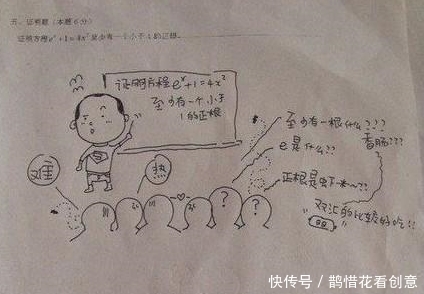 五、证明题（本题6分）
证明方程e^x+1=4x²至少有一个小于1的正根.
证明方程e^x+1=4x²
至少有一个小于
1的正根
至少有一根什么???
香肠???
e是什么??
正根是虾米~??
双汇的比较好吃!!
难
热
?
?
快传号／鹊惜花看创意